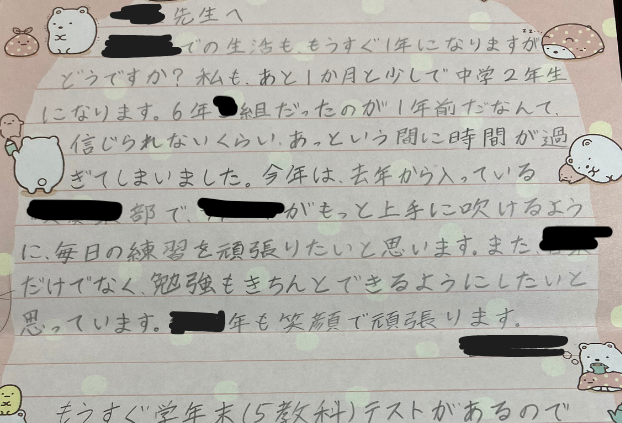 先生へ
での生活も、もうすぐ1年になりますが
どうですか？私も、あと1か月と少しで中学2年生
になります。6年組だったのが1年前だなんて、
信じられないくらい、あっという間に時間が過
ぎてしまいました。今年は、去年から入っている
部で、がもっと上手に吹けるよう
に、毎日の練習を頑張りたいと思います。また、
だけでなく、勉強もきちんとできるようにしたいと
思っています。年も笑顔で頑張ります。
もうすぐ学年末(5教科)テストがあるので